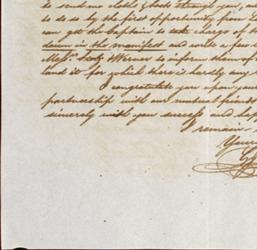 to send me cloths
to do so by the first opportunity from
can get the Captain to take charge of th
down in the manifest and write a few
Messrs. Werner to inform them of
land it for which there is hardly any
I congratulate you upon your
partnership with our mutual friends
sincerely wish you success and hap
I remain
Yours